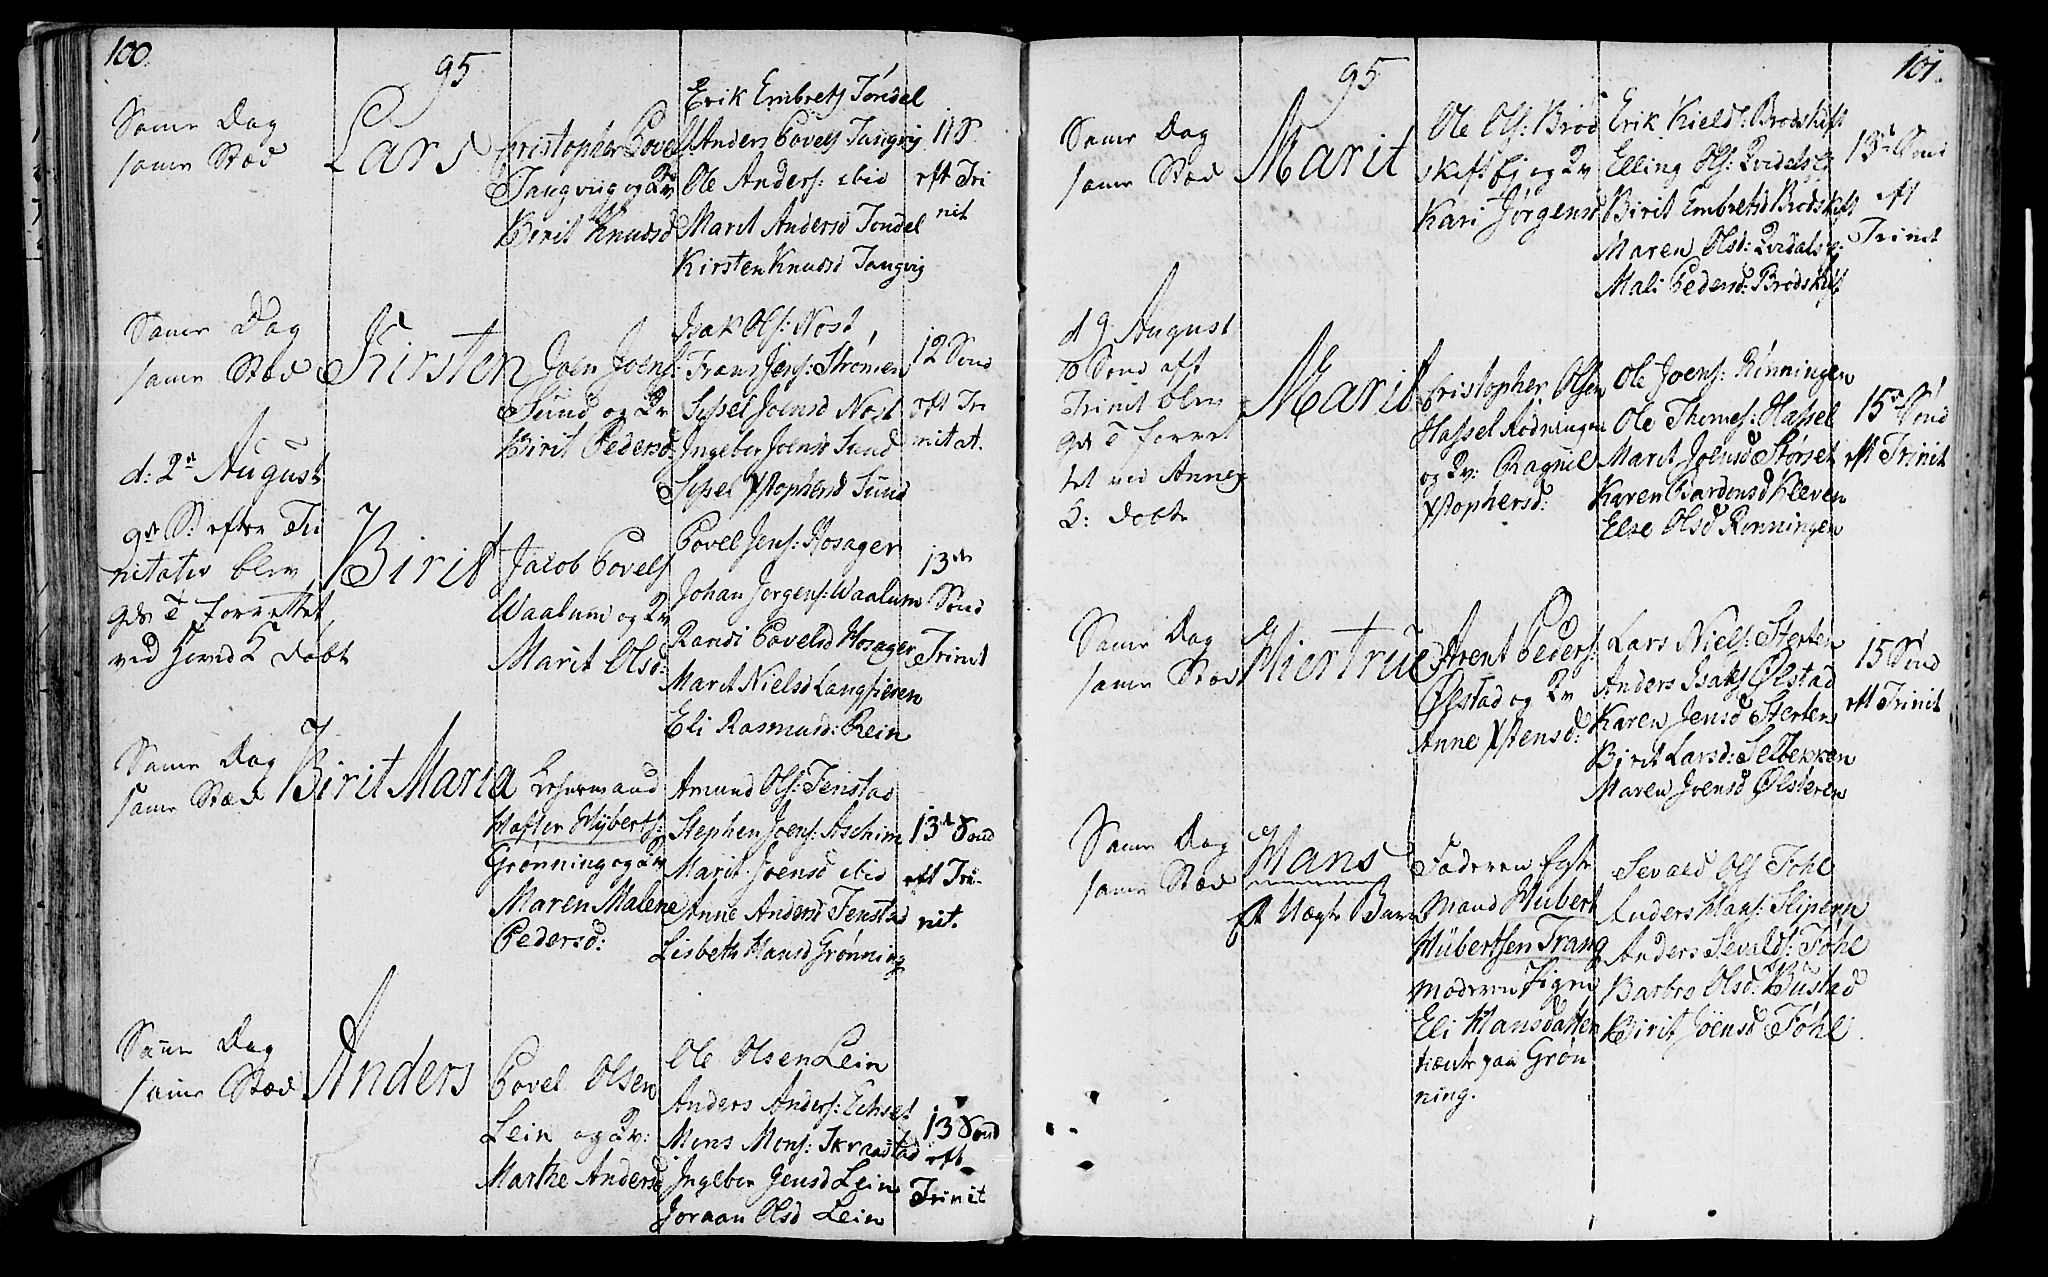 100.
95
Same Dag
samme Stæd
Lars
Cristopher Povels:
Tangvig og Qv
Birit Knudsd
Erik Embrets Tøndel
Anders Povels Tangvig
Ole Anders: ibid
Marit Andersd Tøndel
Kirsten Knudsd Tangvig
11 S
eft Tri
nit
Same Dag
same Stæd
Kirsten
Joen Joens:
Sund og Qv
Birit Pedersd:
Isak Ols: Nost
Frans Jens: Strømen
Sissel Joensd Nost
Ingebor Joensd Sund
Sissel Xstophersd Sund
12 Sönd
eft Tri
nitat.
d: 2n August
9de S: efter Tri
nitatis blev
gds T forrettet
ved Hovd K døbt
Birit
Jacob Povels
Waalum og Qv
Marit Olsd:
Povel Jens: Hosager
Johan Jørgens: Waalum
Randi Povelsd Hosager
Marit Nielsd Langsieren
Eli Rasmusd: Rein
13de
Sönd
Trinit
Same Dag
same Stæd
Birit Maria
Haftor Hyberts:
Grønning og Qv
Maren Malene
Pedersd:
Amund Ols: Fenstad
Stephen Joens: Aschim
Marit Joensd ibid
Anne Andersd Fenstad
Lisbeth Hansd Grønning
13d Sönd
eft Tri-
nit.
Same Dag
same Stæd
Anders
Povel Olsen
Lein og Qv:
Marthe Andersd
Ole Olsen Lein
Anders Anders: Echset
Mons Mons: Skraastad
Ingebor Jensd Lein
Joraan Olsd Lein
13 Sönd
eft
Trinit
101.
95
Same Dag
same Stæd
Marit
Ole Ols: Brød
skift Ej og Qv
Kari Jørgensd
Erik Kields: Brødskift
Elling Ols: Qvidals Ej
Birit Embretsd Brødskift
Maren Olsd: Qvidals Ej
Mali Pedersd: Brødskift
13d Sönd
eft
Trinit
d 9 August
10 Sönd eft
Trinit blev
gds T forret
tet ved Annex
K: døbt
Marit
Cristopher Olsen
Hassel Rødningen
og Qv: Ragnil
Xstophersd:
Ole Joens: Rønningen
Ole Thomes: Hassel
Marit Joensd Størset
Karen Bardonsd Kleeven
Else Olsd Rønningen
15de Sönd
eft Trinit
Same Dag
same Stæd
Hiertrue
Arent Peders:
Ølstad og Qv
Anne Xstensd:
Lars Niels: Sterten
Anders Isaks Ølstad
Karen Jensd Sterten
Birit Larsd: Selbekken
Maren Joensd Ølsteren
15 Sönd
eft Trinit
Same Dag
same Stæd
Hans
Et Uægte Barn
Faderen Egte
mand Hubert
Hübertsen Trang
moderen Pigen
Eli Hansdatter
tiente paa Grøn
ning.
Sevald Ols Fohl
Anders Hans: Slipern
Anders Sevalds: Fohl
Barbro Olsd: Bustad
Birit Jøensd Føhl